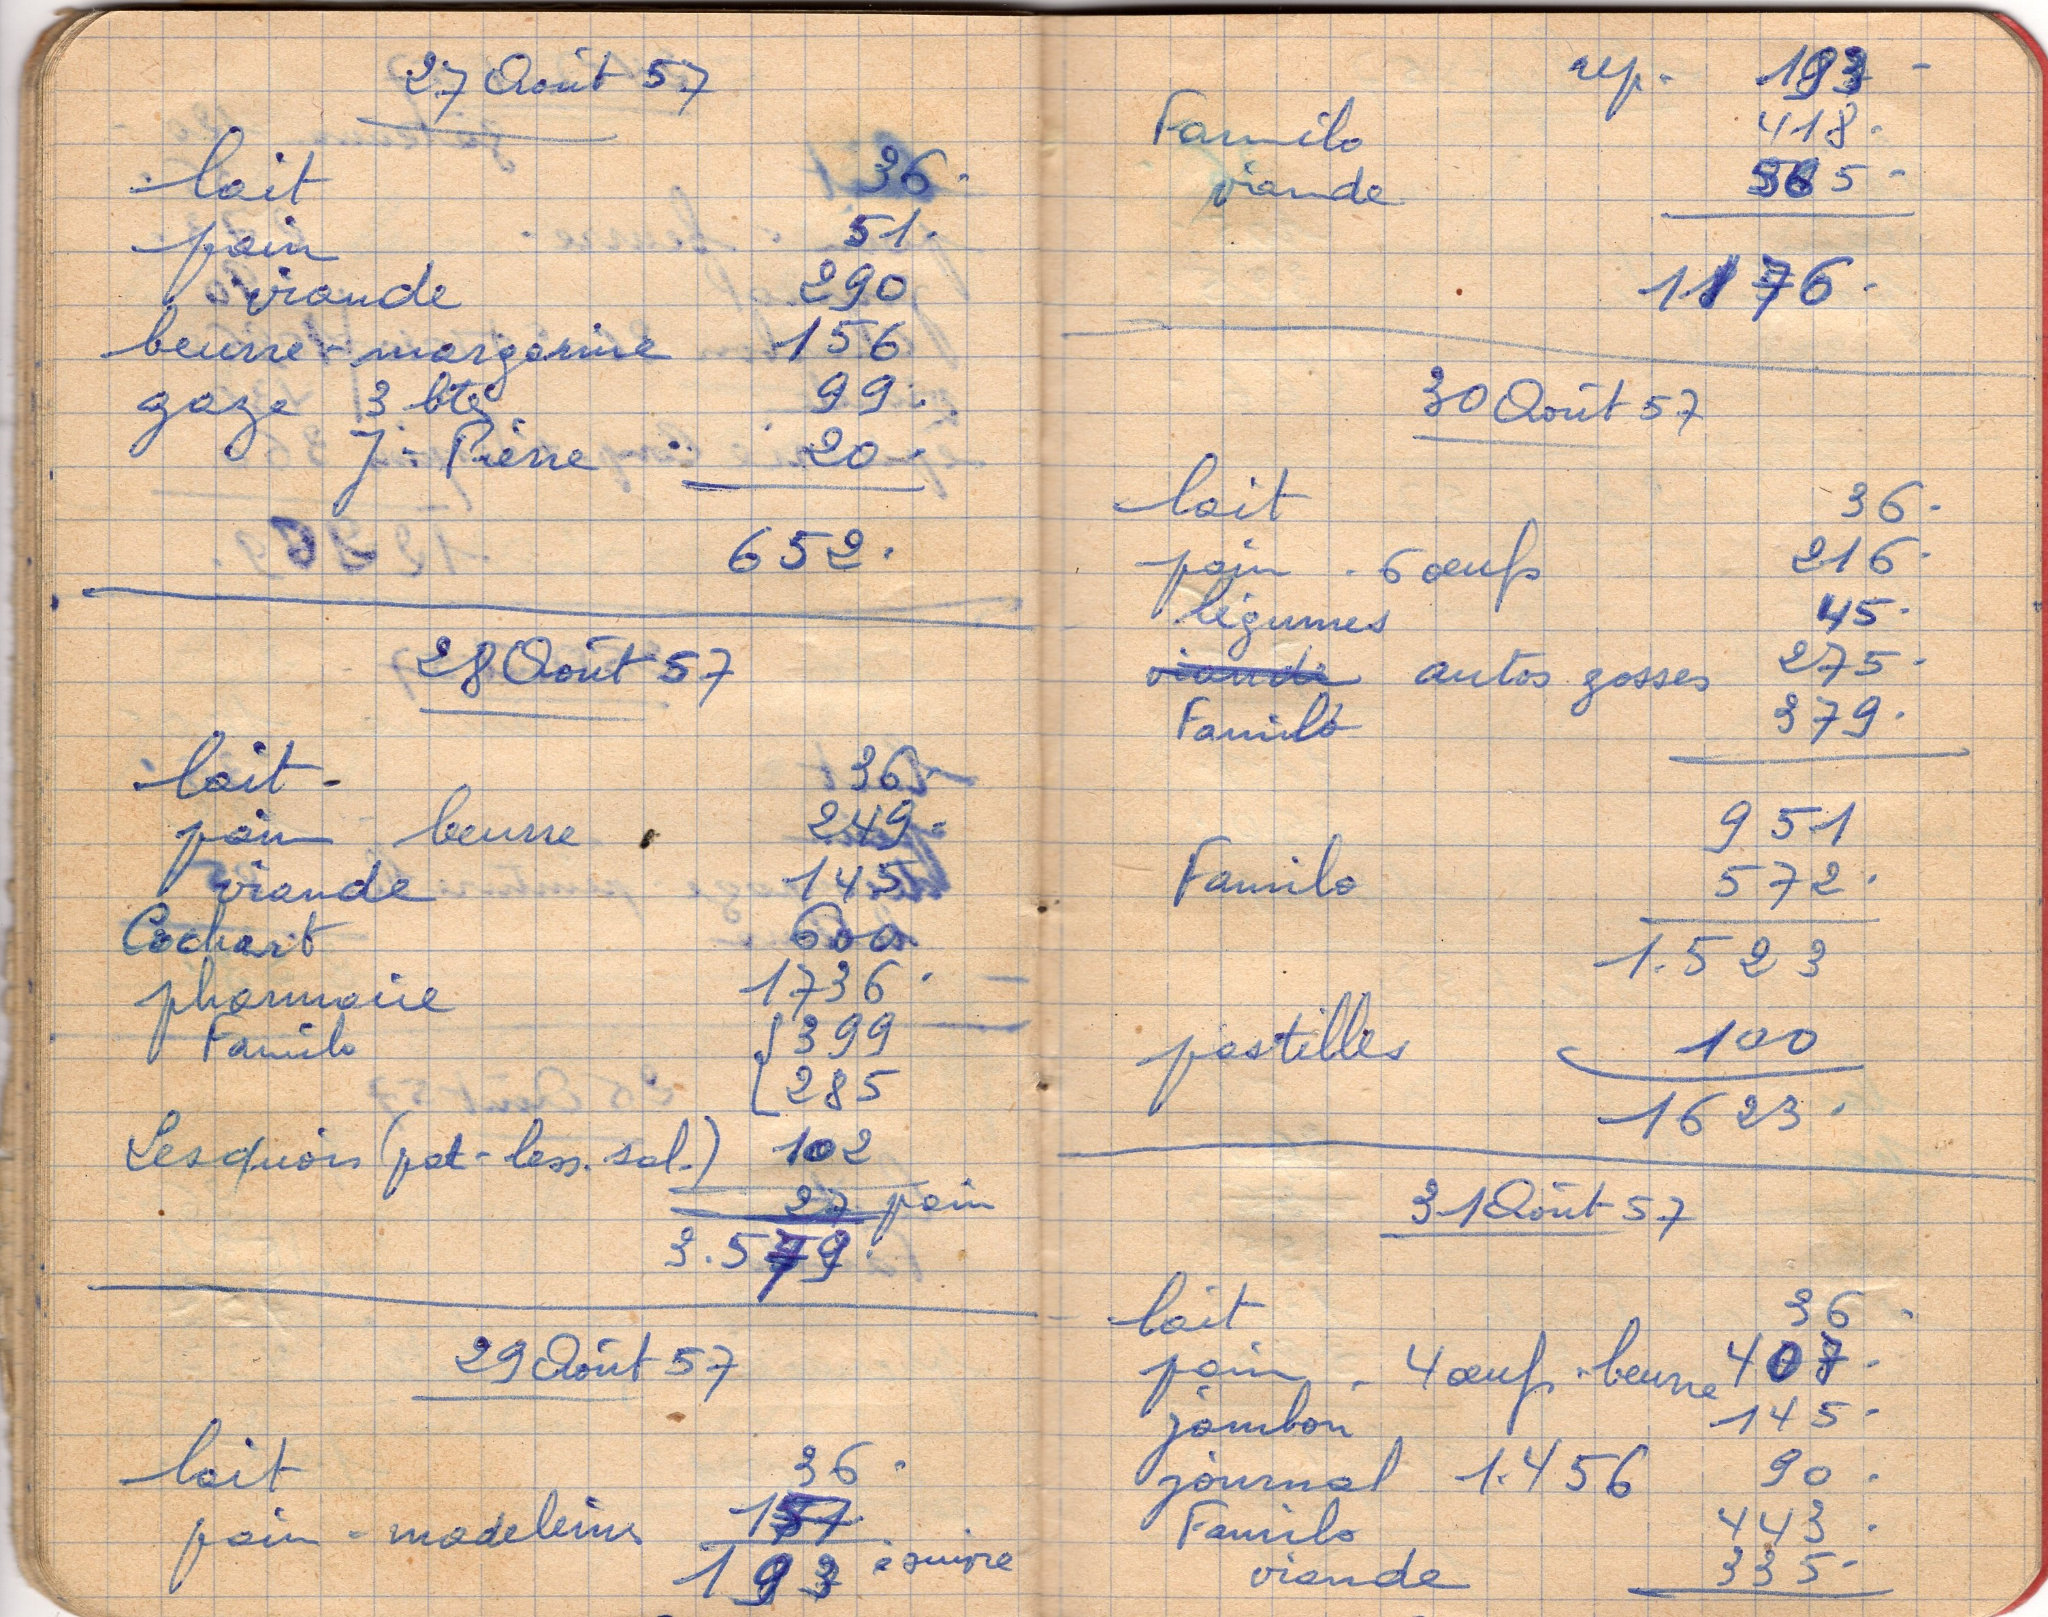 27 Août 57
lait 36.
pain 51.
viande 290
beurre - margarine 156
gaze 3 btes 99.
J. Pierre 20.
652.
28 Août 57
lait - 36
pain beurre 249.
viande 145
Cochart 600
pharmacie 1736.
Familo 399
285
Lesquois (pat - less. sal.) 102
27 pain
3.579.
29 Août 57
lait 36.
pain - madeleines 157
193 à suivre
rep. 193 -
Familo 418.
viande 565 -
1176.
30 Août 57
lait 36.
pain - 6 œufs 216.
légumes 45.
viande autos gosses 275.
Familo 379.
951
Familo 572.
1.523
pastilles 100
1623.
31 Août 57
lait 36.
pain - 4 œufs - beurre 407.
jambon 145.
journal 1.456 90.
Familo 443.
viande 335.